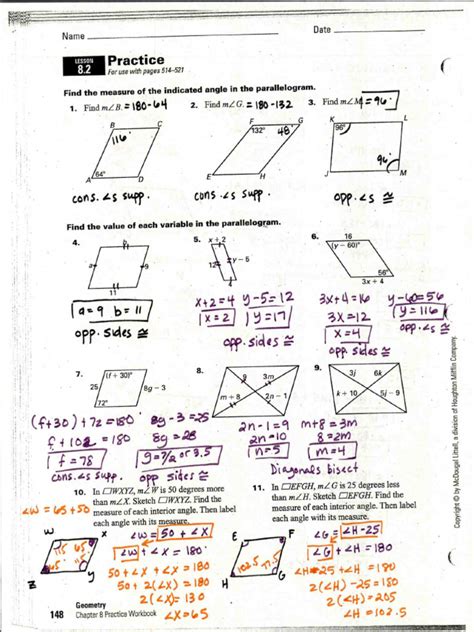 Name
Date
LESSON
8.2
Practice
For use with pages 514–521
Find the measure of the indicated angle in the parallelogram.
1. Find m∠B. = 180-64
2. Find m∠G. = 180-132
3. Find m∠M = 96°
B C
116°
64°
A D
F G
132° 48°
E H
K L
96°
96°
J M
cons. ∠s supp.
cons. ∠s supp.
opp. ∠s ≅
Find the value of each variable in the parallelogram.
4.
b
a 9
11
5. x + 2
12 y – 5
4
6. 16
(y – 60)°
56°
3x + 4
a = 9 b = 11
opp. sides ≅
x+2=4 y-5=12
x = 2 y = 17
opp. sides ≅
3x+4=16 y-60=56
3x=12 y = 116
x=4 opp. ∠s ≅
opp. sides ≅
7. (f + 30)°
25 8g – 3
72°
8. 9 3m
m + 8 2n – 1
9. 3j 6k
k + 10 5j – 9
(f+30)+72=180
f + 102 = 180
f = 78
cons. ∠s supp.
8g - 3 = 25
8g = 28
g = 7/2 or 3.5
opp sides ≅
2n-1=9
2n=10
n=5
m+8=3m
8=2m
m=4
Diagonals bisect
10. In ▱WXYZ, m∠W is 50 degrees more
than m∠X. Sketch ▱WXYZ. Find the
measure of each interior angle. Then label
each angle with its measure.
∠W = 65+50
W X
115 65
65 115
Z Y
∠W = 50 + ∠X
∠W + ∠X = 180
50 + ∠X + ∠X = 180
50 + 2(∠X) = 180
2(∠X) = 130
∠X=65
11. In ▱EFGH, m∠G is 25 degrees less
than m∠H. Sketch ▱EFGH. Find the
measure of each interior angle. Then label
each angle with its measure.
E F
102.5 77.5
H G
∠G = ∠H-25
∠G + ∠H = 180
∠H-25 + ∠H = 180
2(∠H) -25 = 180
2(∠H) = 205
∠H = 102.5
148
Geometry
Chapter 8 Practice Workbook
Copyright © by McDougal Littell, a division of Houghton Mifflin Company.